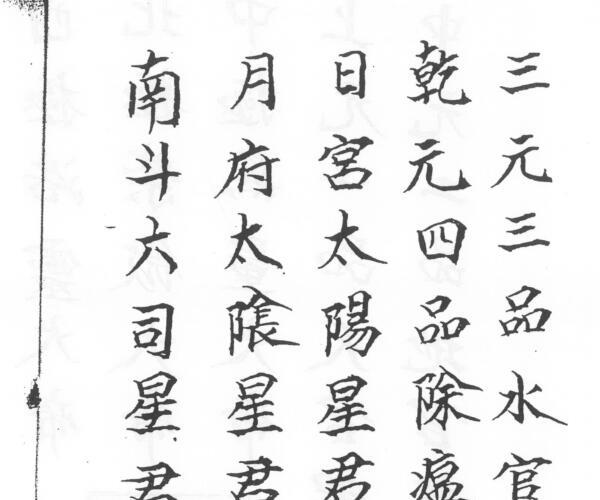 三元三品水官
乾元四品除瘟
日宮太陽星君
月府太陰星君
南斗六司星君